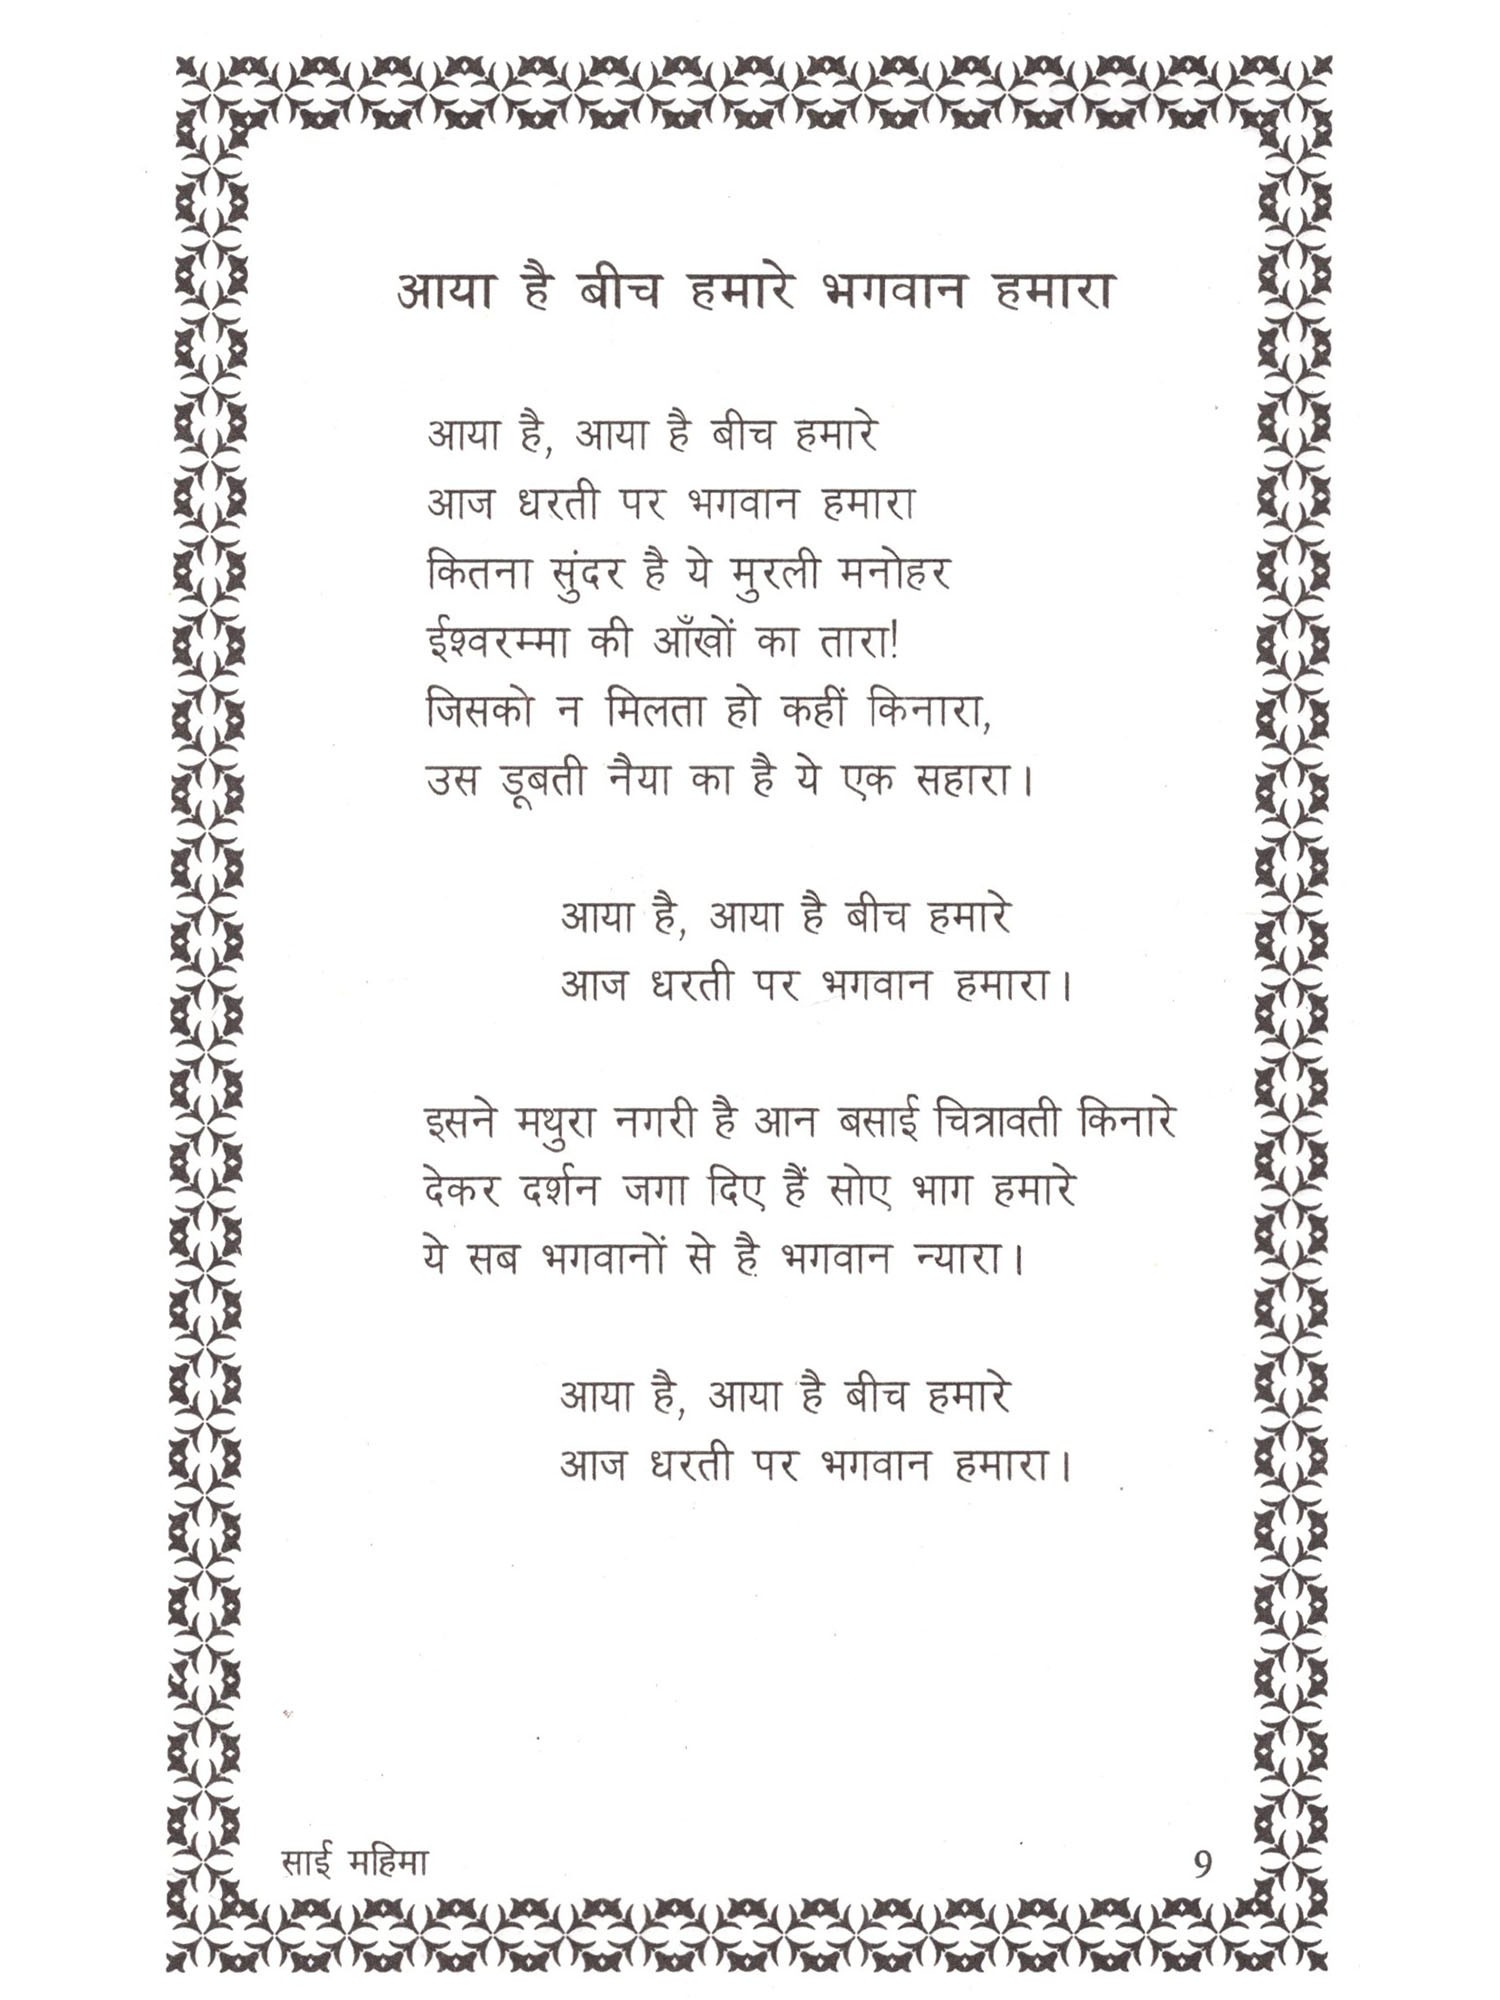 आया है बीच हमारे भगवान हमारा
आया है, आया है बीच हमारे
आज धरती पर भगवान हमारा
कितना सुंदर है ये मुरली मनोहर
ईश्वरम्मा की आँखों का तारा!
जिसको न मिलता हो कहीं किनारा,
उस डूबती नैया का है ये एक सहारा।
आया है, आया है बीच हमारे
आज धरती पर भगवान हमारा।
इसने मथुरा नगरी है आन बसाई चित्रावती किनारे
देकर दर्शन जगा दिए हैं सोए भाग हमारे
ये सब भगवानों से है भगवान न्यारा।
आया है, आया है बीच हमारे
आज धरती पर भगवान हमारा।
साई महिमा 9